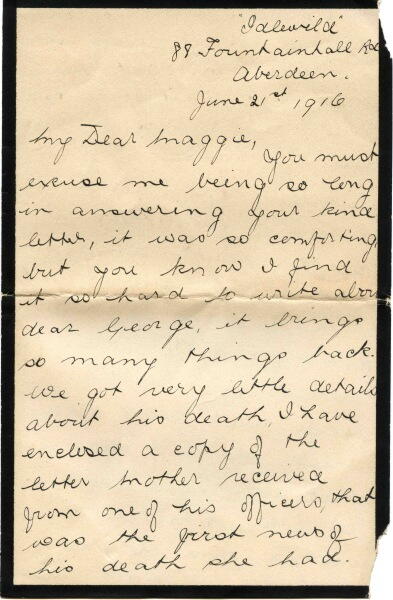 "Idlewild"
88 Fountainhall Rd
Aberdeen.
June 21st, 1916
My Dear Maggie,
You must
excuse me being so long
in answering your kind
letter, it was so comforting,
but you know I find
it so hard to write about
dear George, it brings
so many things back.
We got very little details
about his death, I have
enclosed a copy of the
letter Mother received
from one of his officers, that
was the first news of
his death she had.